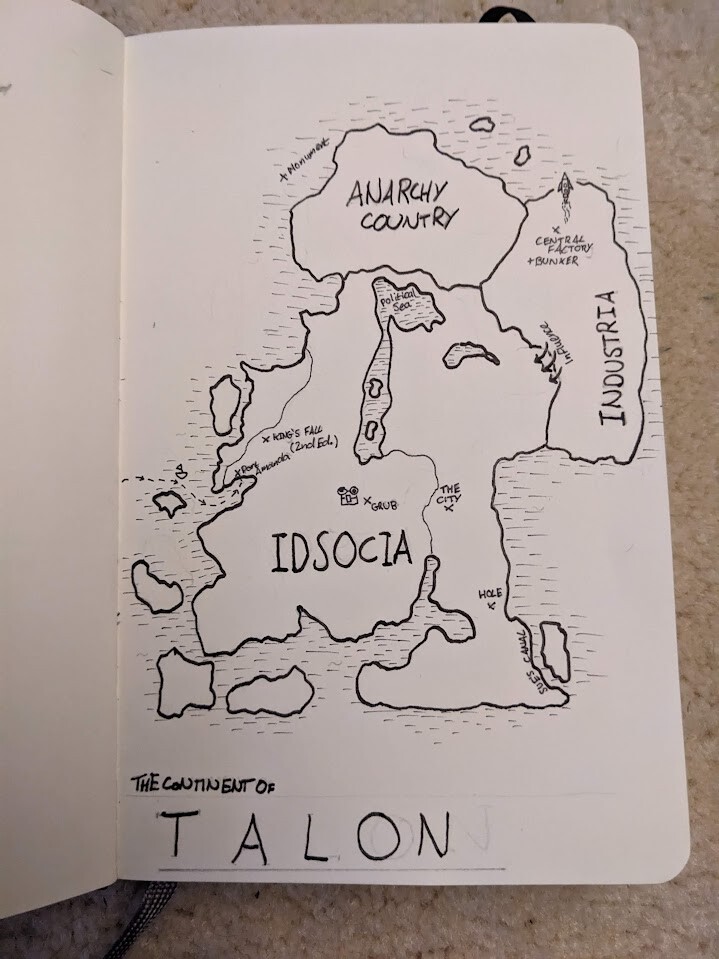 Monument
ANARCHY
COUNTRY
CENTRAL
FACTORY
BUNKER
Political
Sea
Influence
INDUSTRIA
KING'S FALL
(2nd Ed.)
Port
Amanda
GRUB
THE
CITY
IDSOCIA
HOLE
SUE'S CANAL
THE CONTINENT OF
TALON